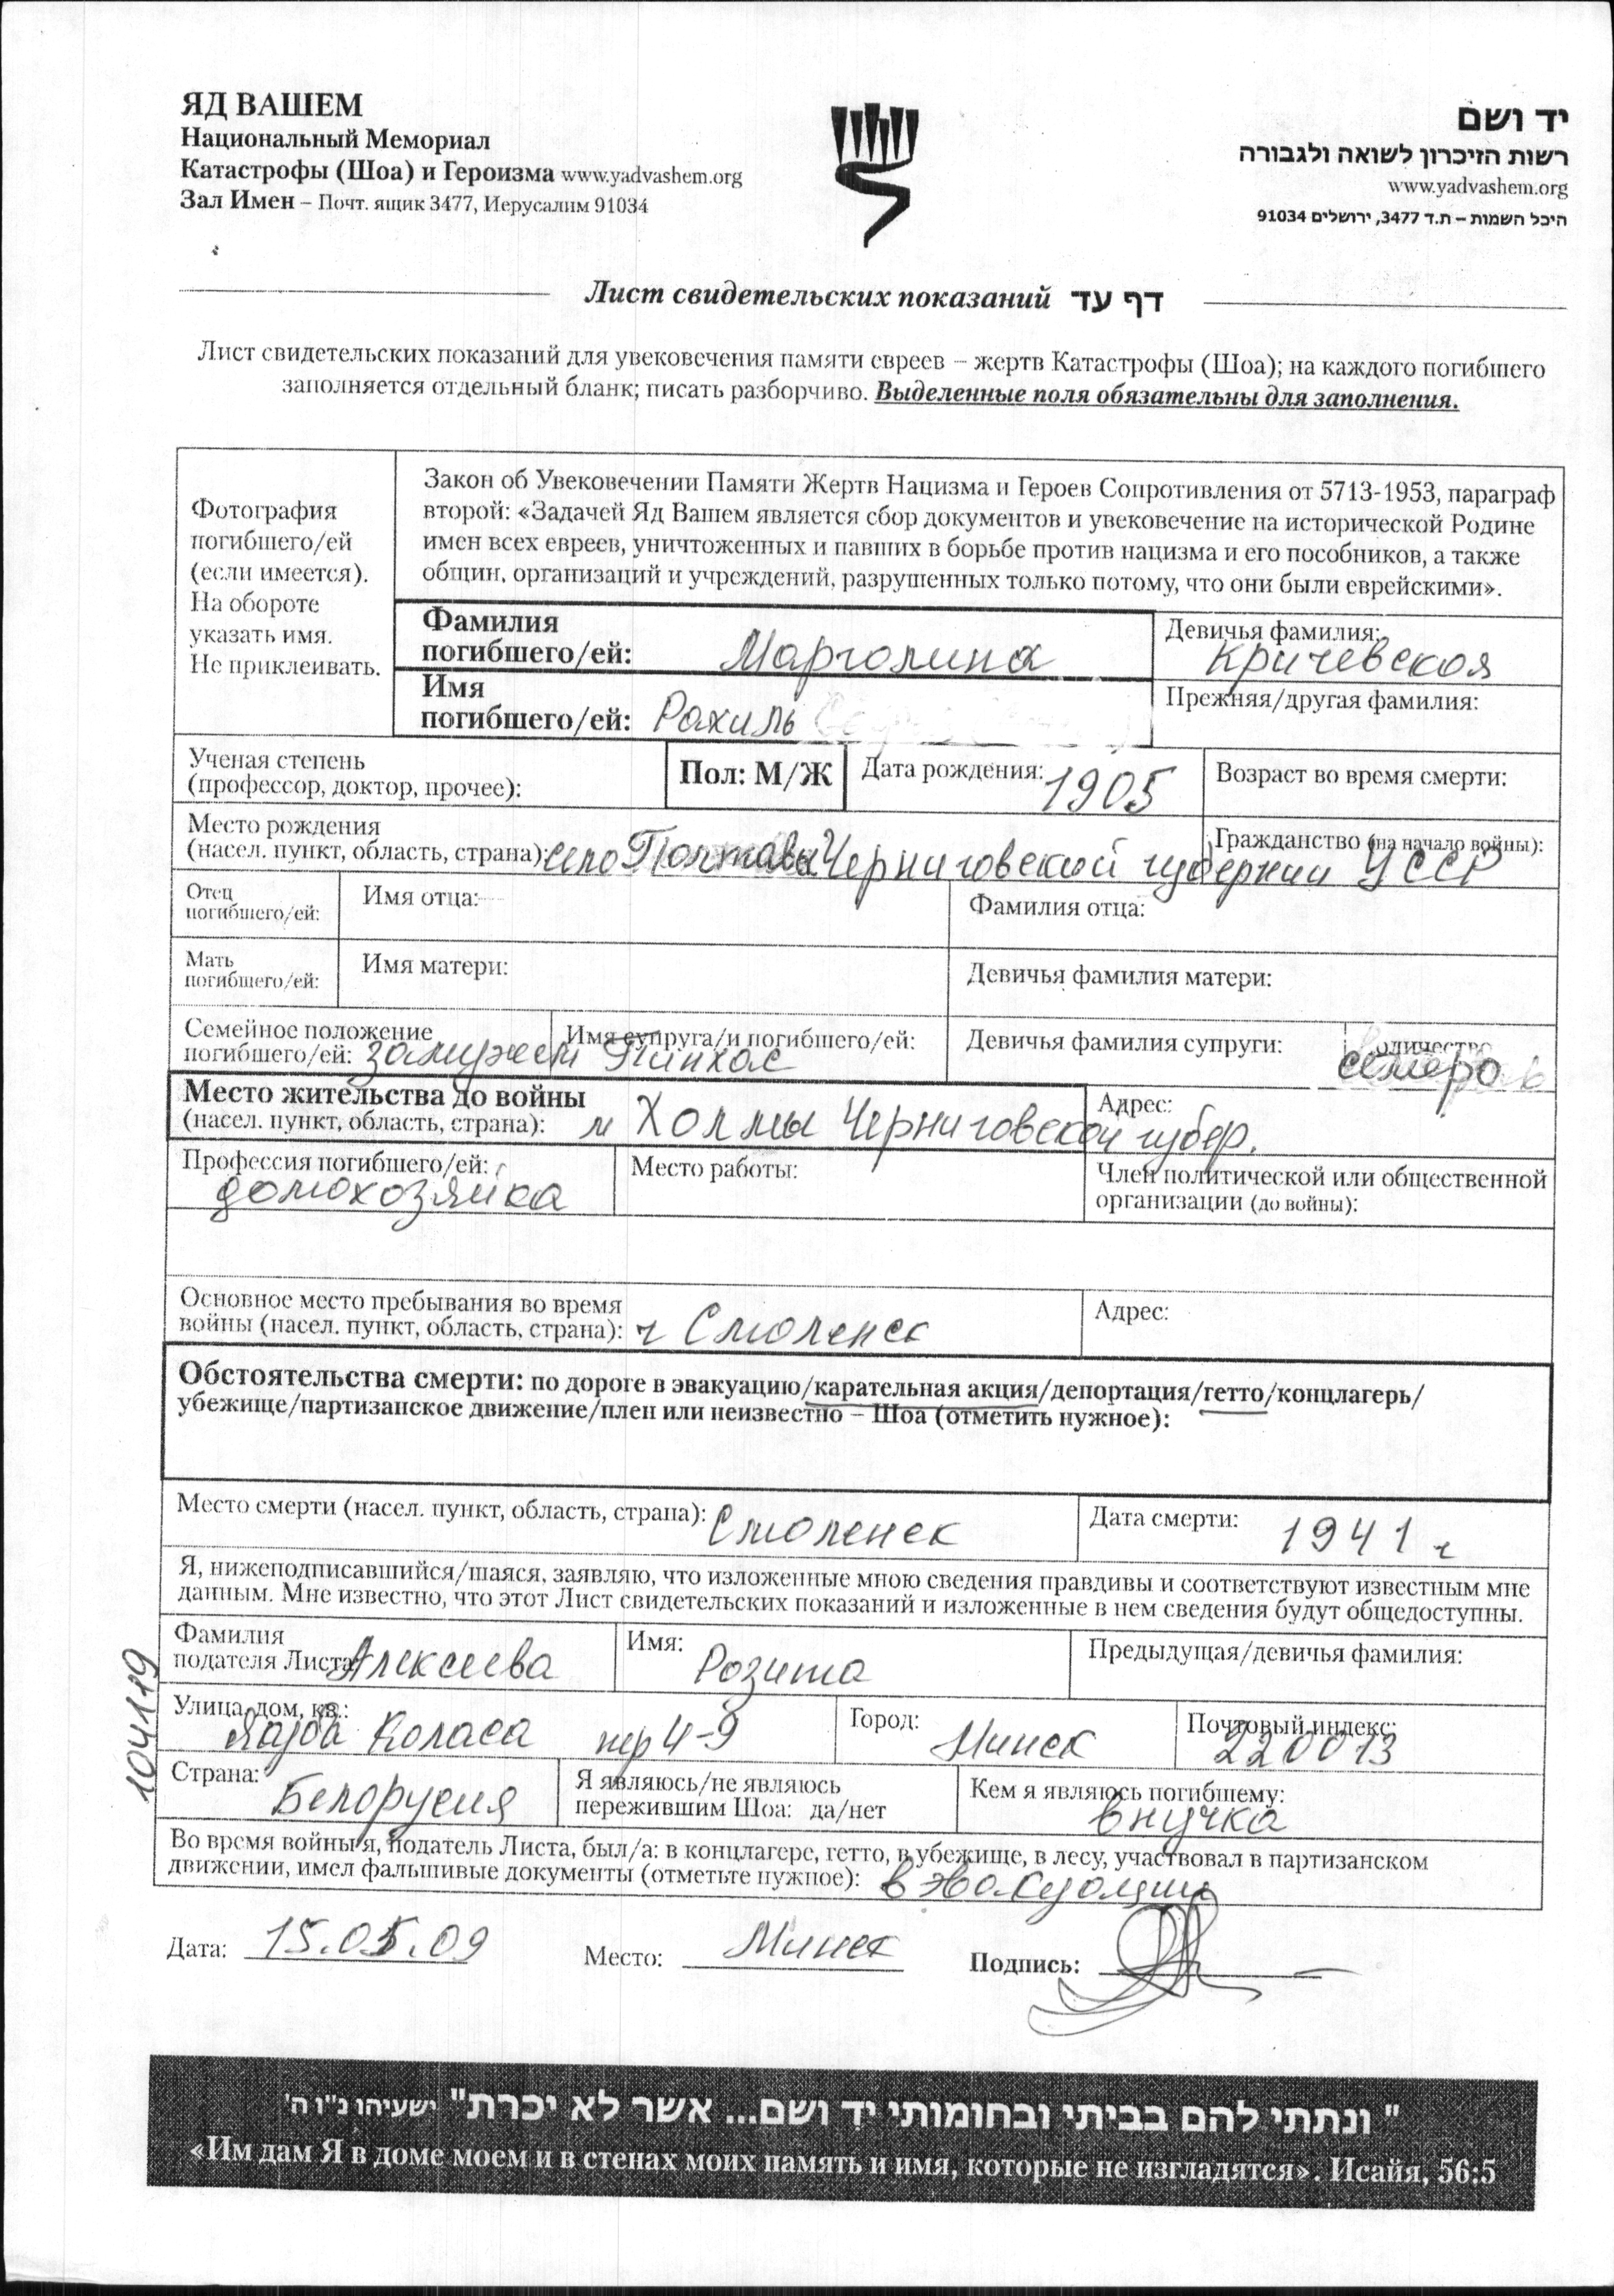 ЯД ВАШЕМ
Национальный Мемориал
Катастрофы (Шоа) и Героизма www.yadvashem.org
Зал Имен – Почт. ящик 3477, Иерусалим 91034
יד ושם
רשות הזיכרון לשואה ולגבורה
www.yadvashem.org
היכל השמות – ת.ד 3477, ירושלים 91034
Лист свидетельских показаний דף עד
Лист свидетельских показаний для увековечения памяти евреев – жертв Катастрофы (Шоа); на каждого погибшего
заполняется отдельный бланк; писать разборчиво. Выделенные поля обязательны для заполнения.
Фотография
погибшего/ей
(если имеется).
На обороте
указать имя.
Не приклеивать.
Закон об Увековечении Памяти Жертв Нацизма и Героев Сопротивления от 5713-1953, параграф
второй: «Задачей Яд Вашем является сбор документов и увековечение на исторической Родине
имен всех евреев, уничтоженных и павших в борьбе против нацизма и его пособников, а также
общин, организаций и учреждений, разрушенных только потому, что они были еврейскими».
Фамилия
погибшего/ей: Марголина
Девичья фамилия:
Кричевская
Имя
погибшего/ей: Рахиль
Прежняя/другая фамилия:
Ученая степень
(профессор, доктор, прочее):
Пол: М/Ж
Дата рождения: 1905
Возраст во время смерти:
Место рождения
(насел. пункт, область, страна): село Полтава Черниговской губернии
Гражданство (на начало войны):
УССР
Отец
погибшего/ей:
Имя отца:
Фамилия отца:
Мать
погибшего/ей:
Имя матери:
Девичья фамилия матери:
Семейное положение
погибшего/ей: замужем
Имя супруга/и погибшего/ей:
Пинхас
Девичья фамилия супруги:
количество
семеро
Место жительства до войны
(насел. пункт, область, страна): м Холмы Черниговской губер.
Адрес:
Профессия погибшего/ей:
домохозяйка
Место работы:
Член политической или общественной
организации (до войны):
Основное место пребывания во время
войны (насел. пункт, область, страна): г Смоленск
Адрес:
Обстоятельства смерти: по дороге в эвакуацию/карательная акция/депортация/гетто/концлагерь/
убежище/партизанское движение/плен или неизвестно – Шоа (отметить нужное):
Место смерти (насел. пункт, область, страна): Смоленск
Дата смерти: 1941 г
Я, нижеподписавшийся/шаяся, заявляю, что изложенные мною сведения правдивы и соответствуют известным мне
данным. Мне известно, что этот Лист свидетельских показаний и изложенные в нем сведения будут общедоступны.
Фамилия
подателя Листа: Алексеева
Имя: Розита
Предыдущая/девичья фамилия:
Улица, дом, кв.:
Якуба Коласа пер 4-9
Город: Минск
Почтовый индекс:
220013
Страна: Белорусия
Я являюсь/не являюсь
пережившим Шоа: да/нет
Кем я являюсь погибшему:
внучка
Во время войны я, податель Листа, был/а: в концлагере, гетто, в убежище, в лесу, участвовал в партизанском
движении, имел фальшивые документы (отметьте нужное): в эвакуации
Дата: 15.05.09 Место: Минск Подпись:
104119
" ונתתי להם בביתי ובחומותי יד ושם... אשר לא יכרת" ישעיהו נ"ו ה'
«Им дам Я в доме моем и в стенах моих память и имя, которые не изгладятся». Исайя, 56:5